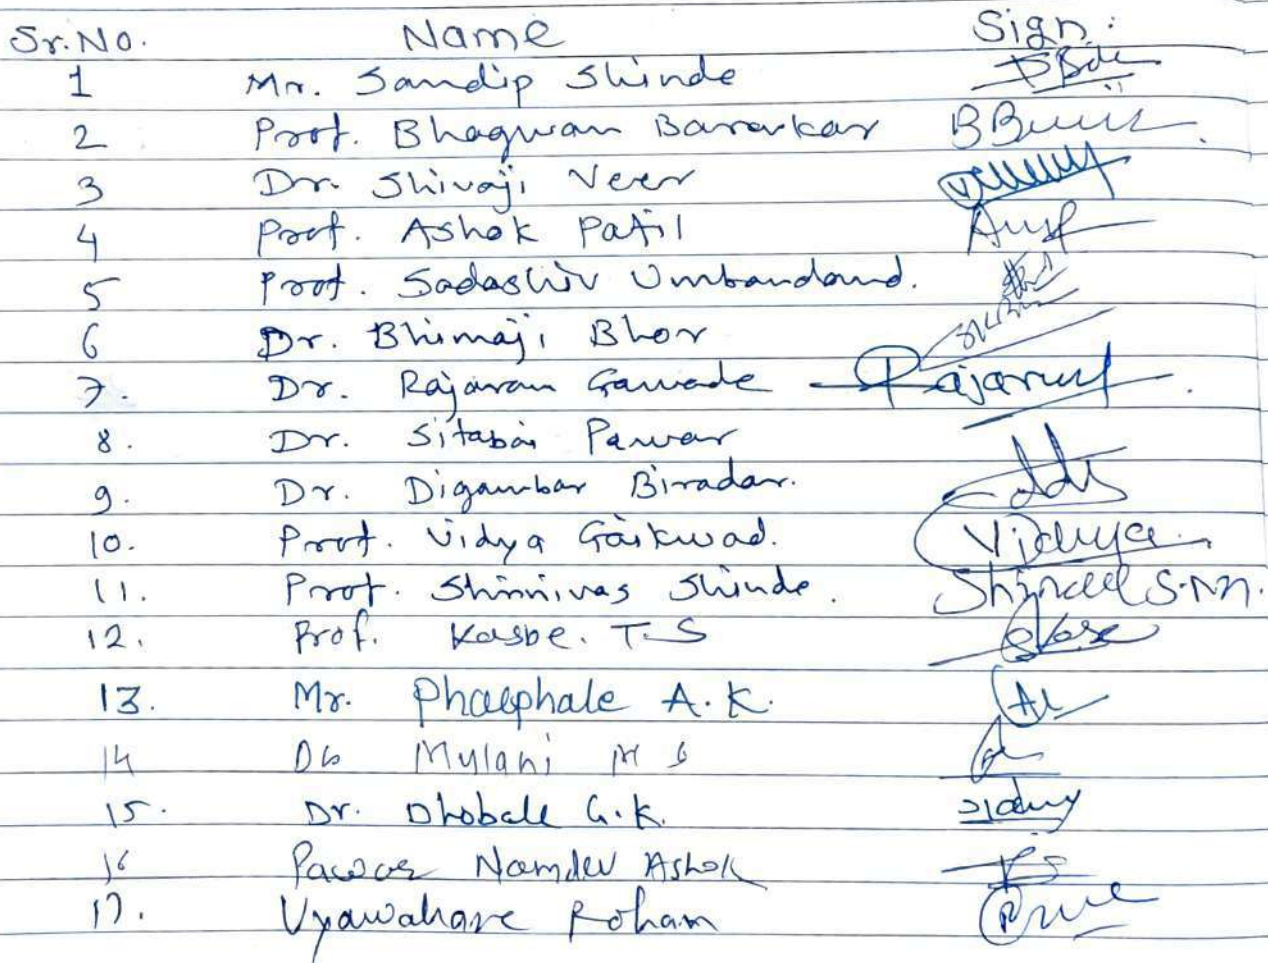 Sr.No. Name Sign:
1 Mr. Sandip Shinde
2 Prof. Bhagwan Barakar
3 Dr. Shivaji Veer
4 Prof. Ashok Patil
5 Prof. Sadashiv
6 Dr. Bhimaji Bhor
7. Dr. Rajaram Gawade
8. Dr. Sitabai Pawar
9. Dr. Digambar Biradar.
10. Prof. Vidya Gaikwad. Vidya
11. Prof. Shrinivas Shinde. Shinde S.
12. Prof. Kasbe. T.S
13. Mr. Phalphale A.K.
14 Mulani M S
15. Dr. Dhobale G.K.
16 Pawar Namdev Ashok
17. Vyawahare Roham